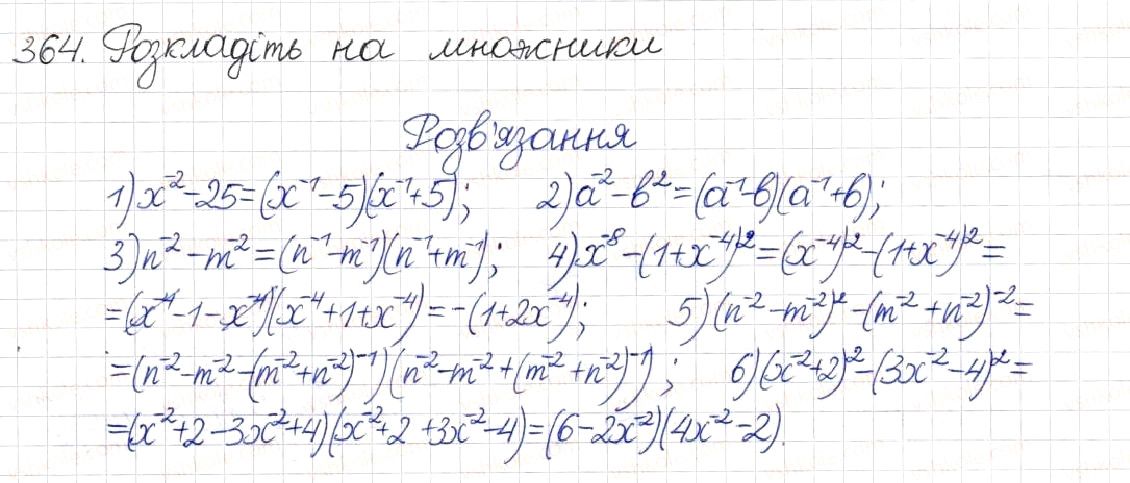 364. Розкладіть на множники
Розв'язання
1) x⁻²-25=(x⁻¹-5)(x⁻¹+5); 2) a⁻²-b²=(a⁻¹-b)(a⁻¹+b);
3) n⁻²-m⁻²=(n⁻¹-m⁻¹)(n⁻¹+m⁻¹); 4) x⁻⁸-(1+x⁻⁴)²=(x⁻⁴)²-(1+x⁻⁴)²=
=(x⁻⁴-1-x⁻⁴)(x⁻⁴+1+x⁻⁴)=-(1+2x⁻⁴); 5) (n⁻²-m⁻²)²-(m⁻²+n⁻²)⁻²=
=(n⁻²-m⁻²-(m⁻²+n⁻²)⁻¹)(n⁻²-m⁻²+(m⁻²+n⁻²)⁻¹); 6) (x⁻²+2)²-(3x⁻²-4)²=
=(x⁻²+2-3x⁻²+4)(x⁻²+2+3x⁻²-4)=(6-2x⁻²)(4x⁻²-2).